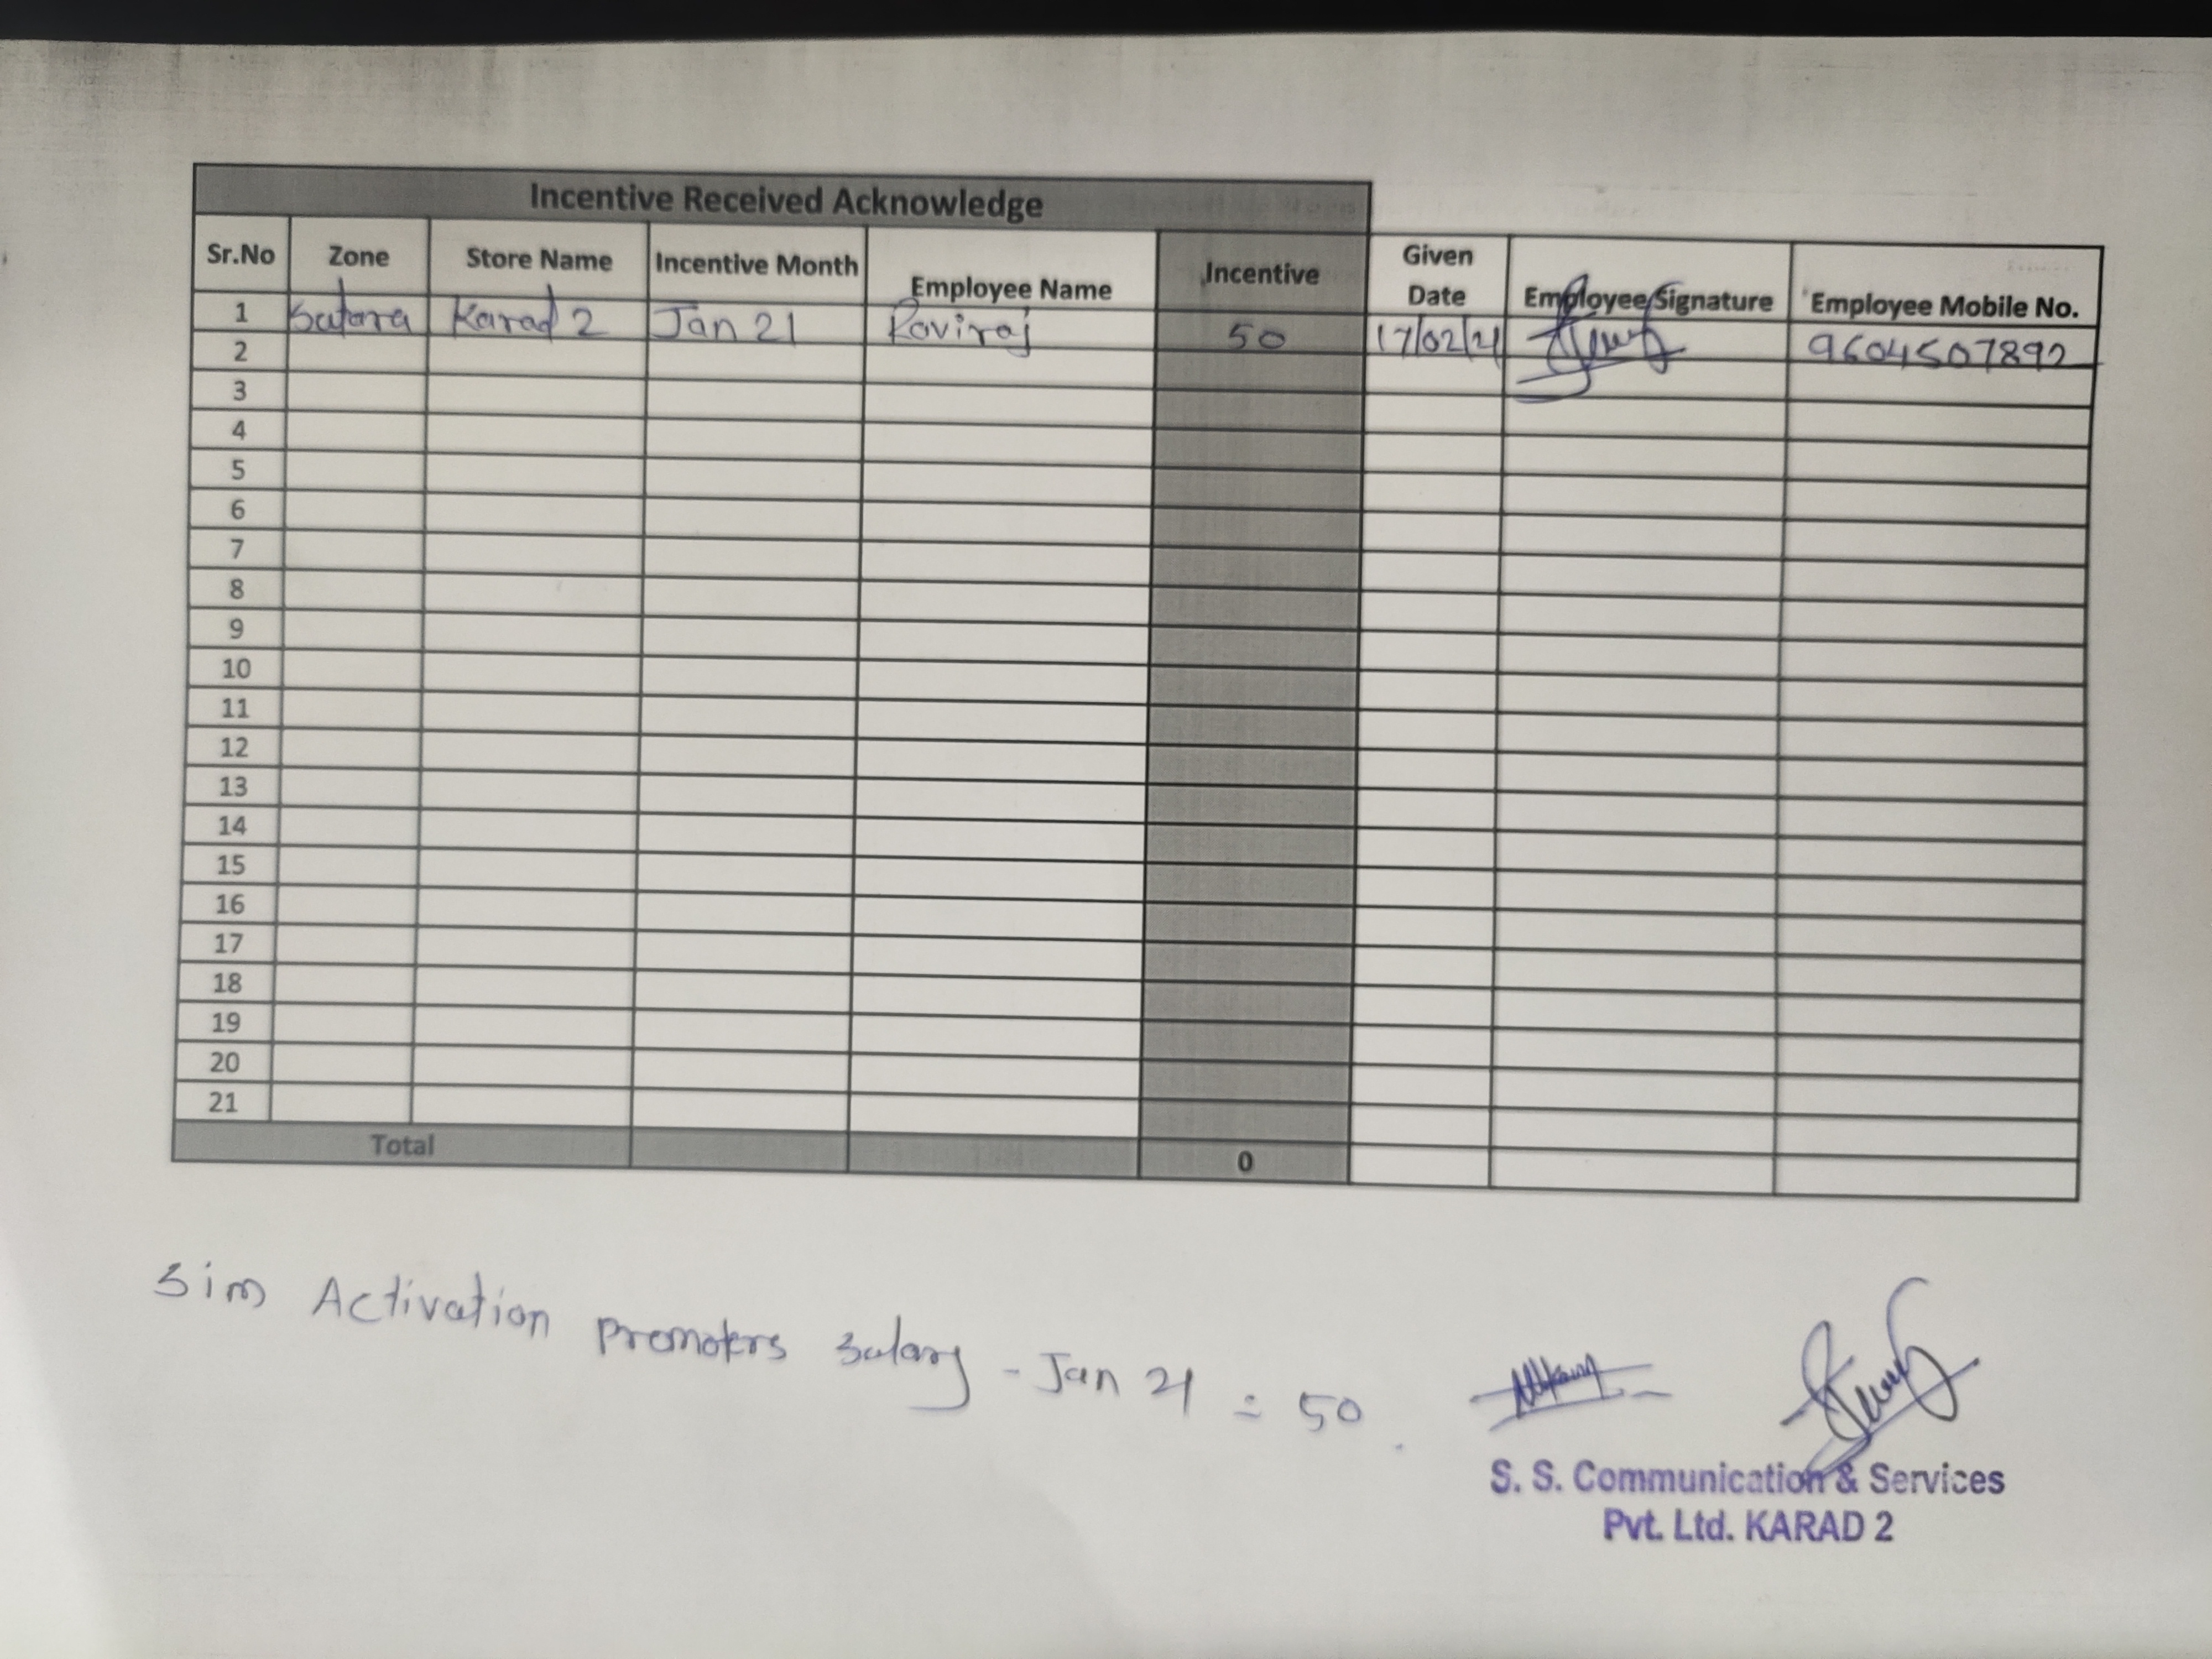 Incentive Received Acknowledge
Sr.No Zone Store Name Incentive Month Employee Name Incentive Given Date Employee Signature Employee Mobile No.
1 Satara Karad 2 Jan 21 Raviraj 50 17/02/21 9604507892
2
3
4
5
6
7
8
9
10
11
12
13
14
15
16
17
18
19
20
21
Total 0
Sim Activation Promoters Salary - Jan 21 = 50.
S. S. Communication & Services
Pvt. Ltd. KARAD 2